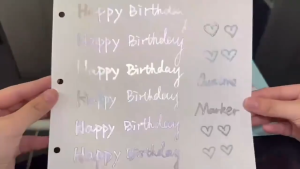 Happy Birthday
Happy Birthday
Happy Birthday
Happy Birthday
Happy Birthday
Happy Birthday
Marker